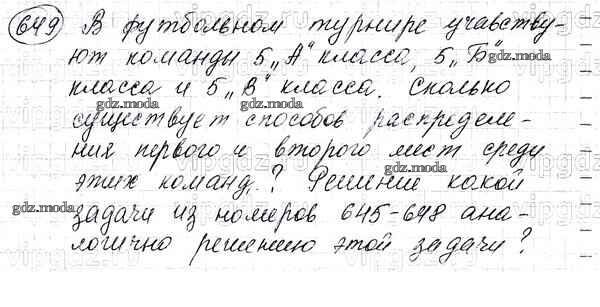 649 В футбольном турнире учавству-
ют команды 5 „А" класса, 5 „Б"
класса и 5 „В" класса. Сколько
существует способов распределе-
ния первого и второго мест среди
этих команд? Решение какой
задачи из номеров 645-648 ана-
логично решению этой задачи?
gdz.moda
gdz.moda
gdz.moda
gdz.moda
gdz.moda
gdz.moda
gdz.moda
gdz.moda